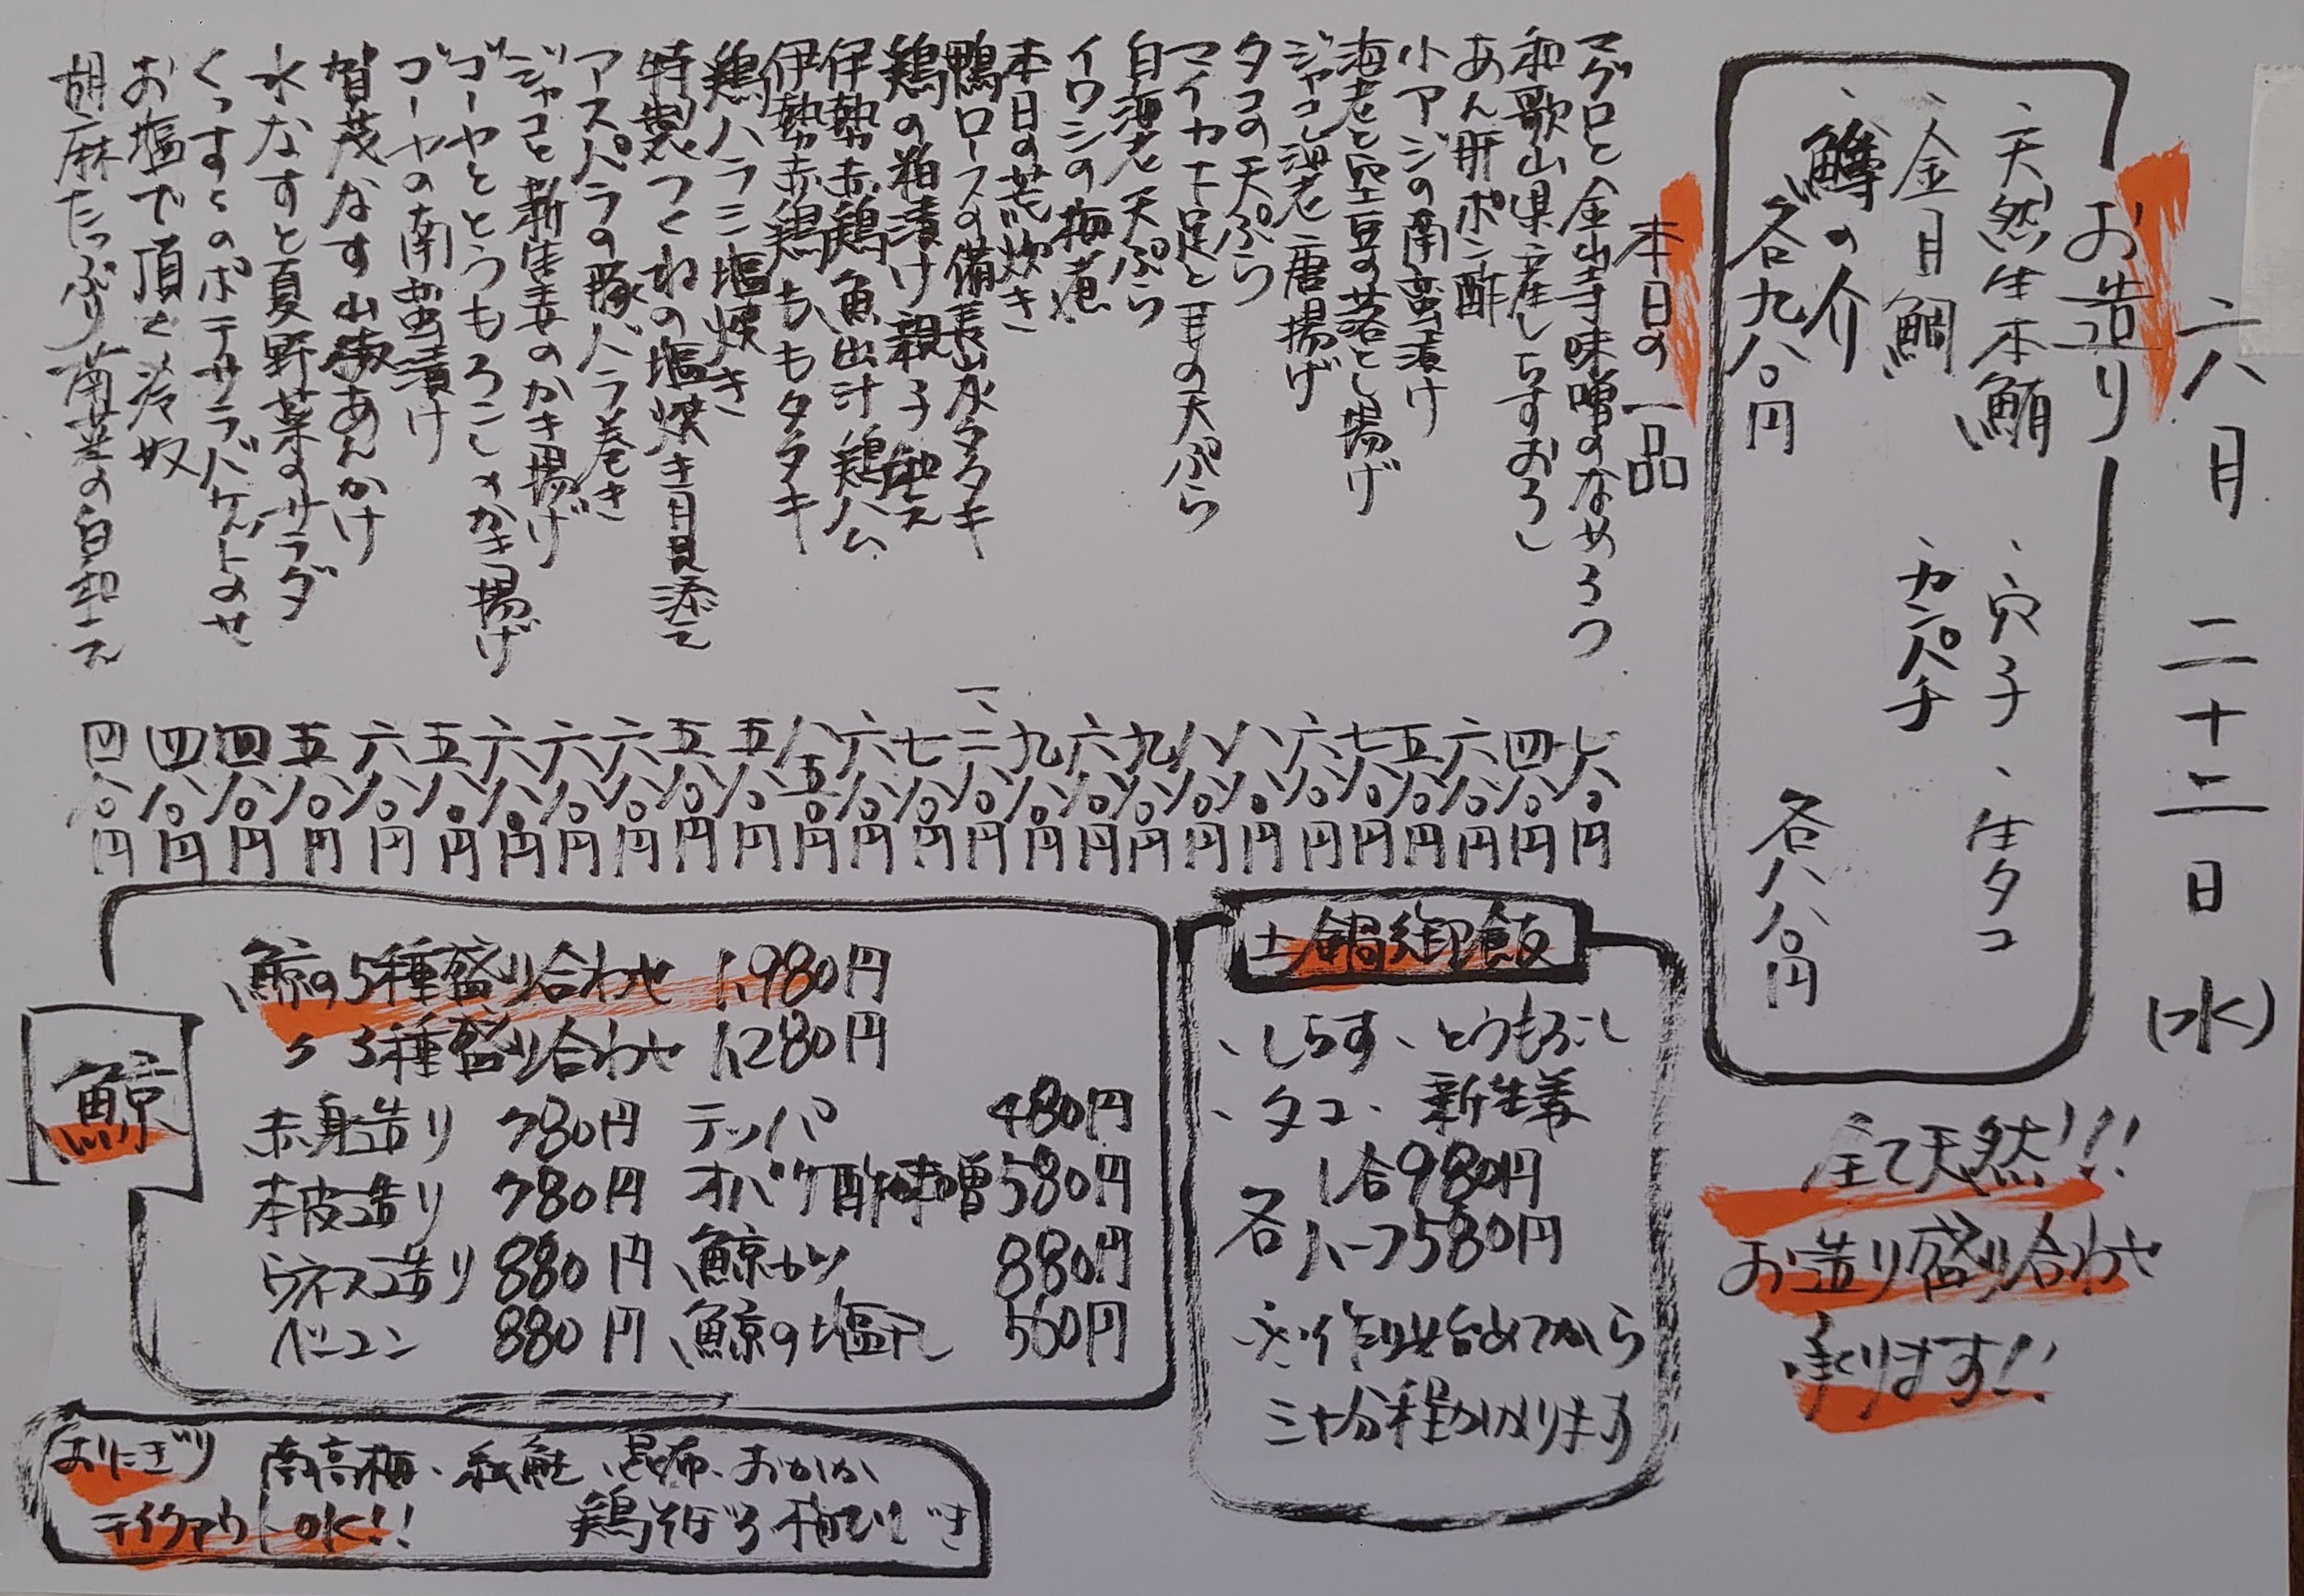 六月二十二日(水)
お造り
、天然生本鮪 、穴子 、生タコ
、金目鯛 、カンパチ
、鱒の介
各九八〇円 各八八〇円
全て天然!!!
お造り盛り合わせ
承ります!!
本日の一品
マグロと金山寺味噌のなめろう 七八〇円
和歌山県産しらすおろし 四八〇円
あん肝ポン酢 六八〇円
小アジの南蛮漬け 五八〇円
海老と空豆の落とし揚げ 七八〇円
ジャコ海老唐揚げ 六八〇円
タコの天ぷら 八八〇円
マイカ下足と耳の天ぷら 八八〇円
白海老天ぷら 九八〇円
イワシの梅煮 六八〇円
本日の荒炊き 九八〇円
鴨ロースの備長山水タタキ 一、二八〇円
鶏の粕漬け親子和え 七八〇円
伊勢赤鶏魚出汁鶏ハム 六八〇円
伊勢赤鶏ももタタキ 八五〇円
鶏ハラミ塩焼き 五八〇円
特製つくねの塩焼き月見添え 五八〇円
アスパラの豚バラ巻き 六八〇円
ジャコと新生姜のかき揚げ 六八〇円
ゴーヤととうもろこしのかき揚げ 六八〇円
ゴーヤの南蛮漬け 五八〇円
賀茂なす山椒あんかけ 六八〇円
水なすと夏野菜のサラダ 五八〇円
くっすくのポテサラバゲットのせ 四八〇円
お塩で頂く冷奴 四八〇円
胡麻たっぷり菊菜の白和え 四八〇円
土鍋御飯
、しらす、とうもろこし
、タコ、新生姜
各 1合980円
ハーフ580円
※作り始めてから
三十分程かかります
鯨
鯨の5種盛り合わせ 1,980円
〃 3種盛り合わせ 1,280円
赤身造り 780円 テッパ 480円
本皮造り 780円 オバケ酢味噌 580円
ウネス造り 880円 鯨カツ 880円
ベーコン 880円 鯨の塩干し 580円
おにぎり 南高梅、紅鮭、昆布、おかか
テイクアウトOK!! 鶏そぼろ